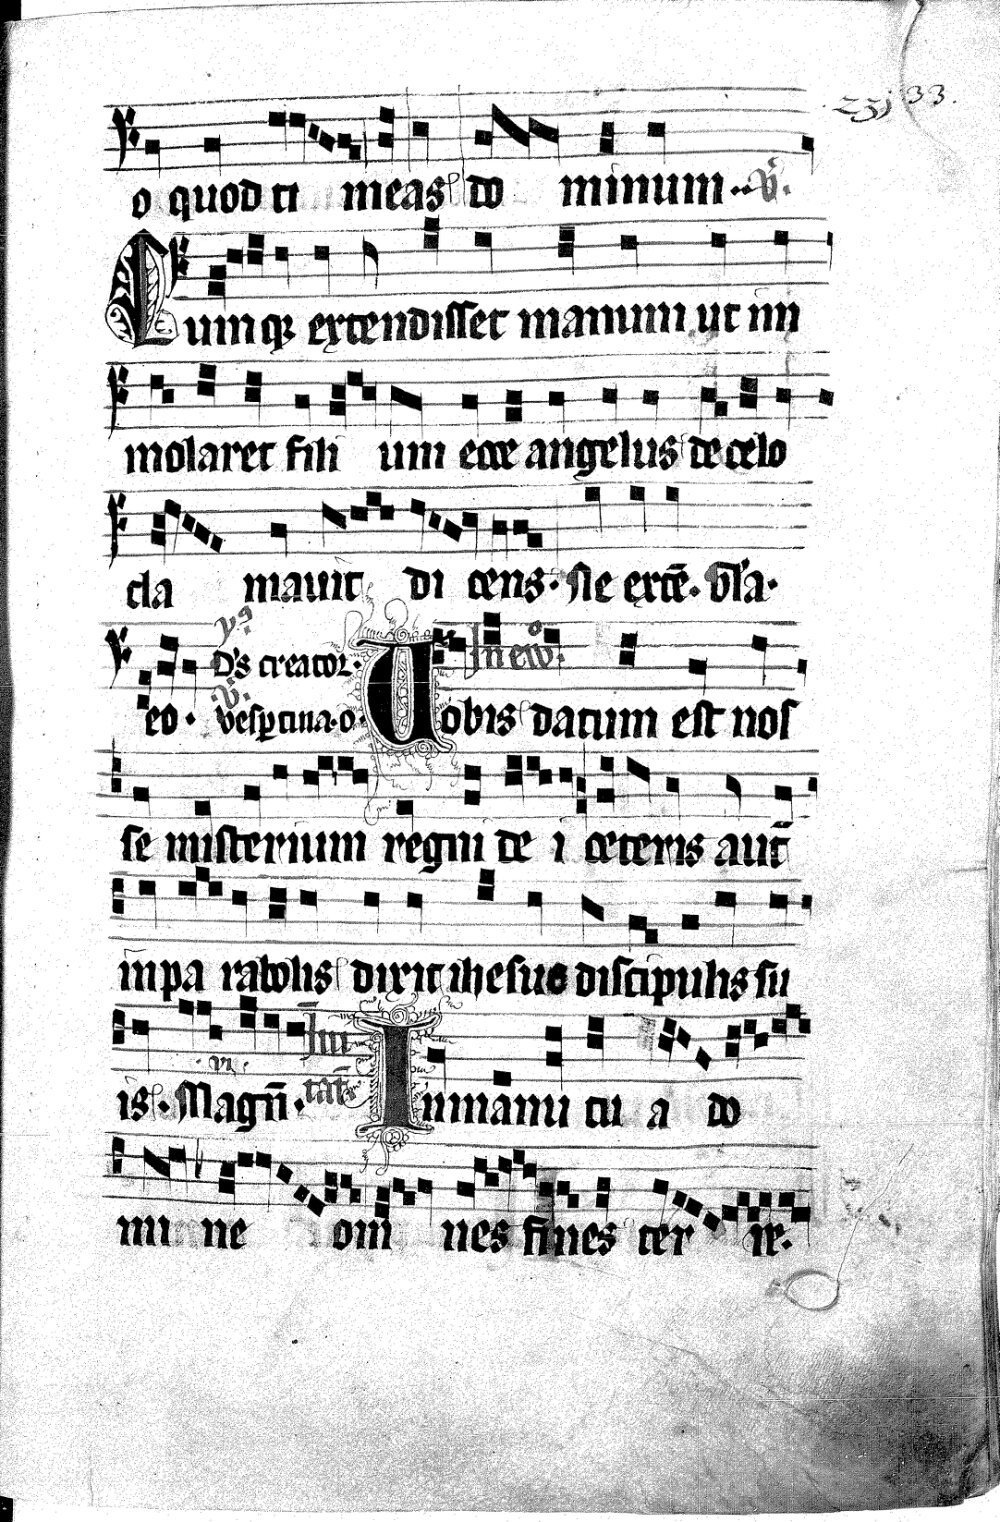 233 33.
o quod ti meas do minum .. v̄.
Cumq; extendisset manum ut im
molaret fili um ecce angelus de celo
cla mauit di cens. Ne extē. v̄sʼa.
y9
Dʼs creator. In eūo.
eo. v̄. vesꝑtina. o. Uobis datum est nos
se misterium regni de i ceteris aut̄
in pa rabolis dixit ihesus discipulis su
is. Magn̄. ps. Inui tat̄. In manu tu a do
mi ne om nes fines ter re.